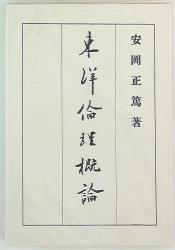 安岡正篤著
東洋倫理概論